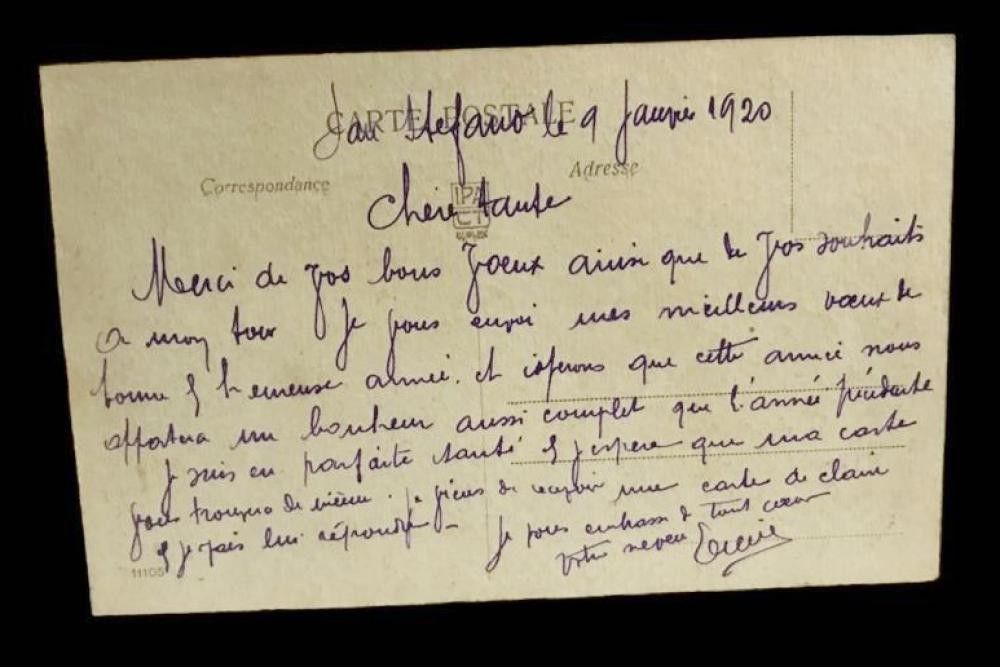 CARTE POSTALE
San Stefano le 9 Janvier 1920
Correspondance
Adresse
Chère tante
Merci de vos bons voeux ainsi que de vos souhaits
a mon tour je vous envoi mes meilleurs voeux de
bonne & heureuse année. et esperons que cette année nous
apportera un bonheur aussi complet que l'année précédente
je suis en parfaite santé & j'espere que ma carte
vous trouvera de même. je viens de recevoir une carte de claire
& je vais lui répondre - je vous embrasse de tout coeur
votre neveu
11105